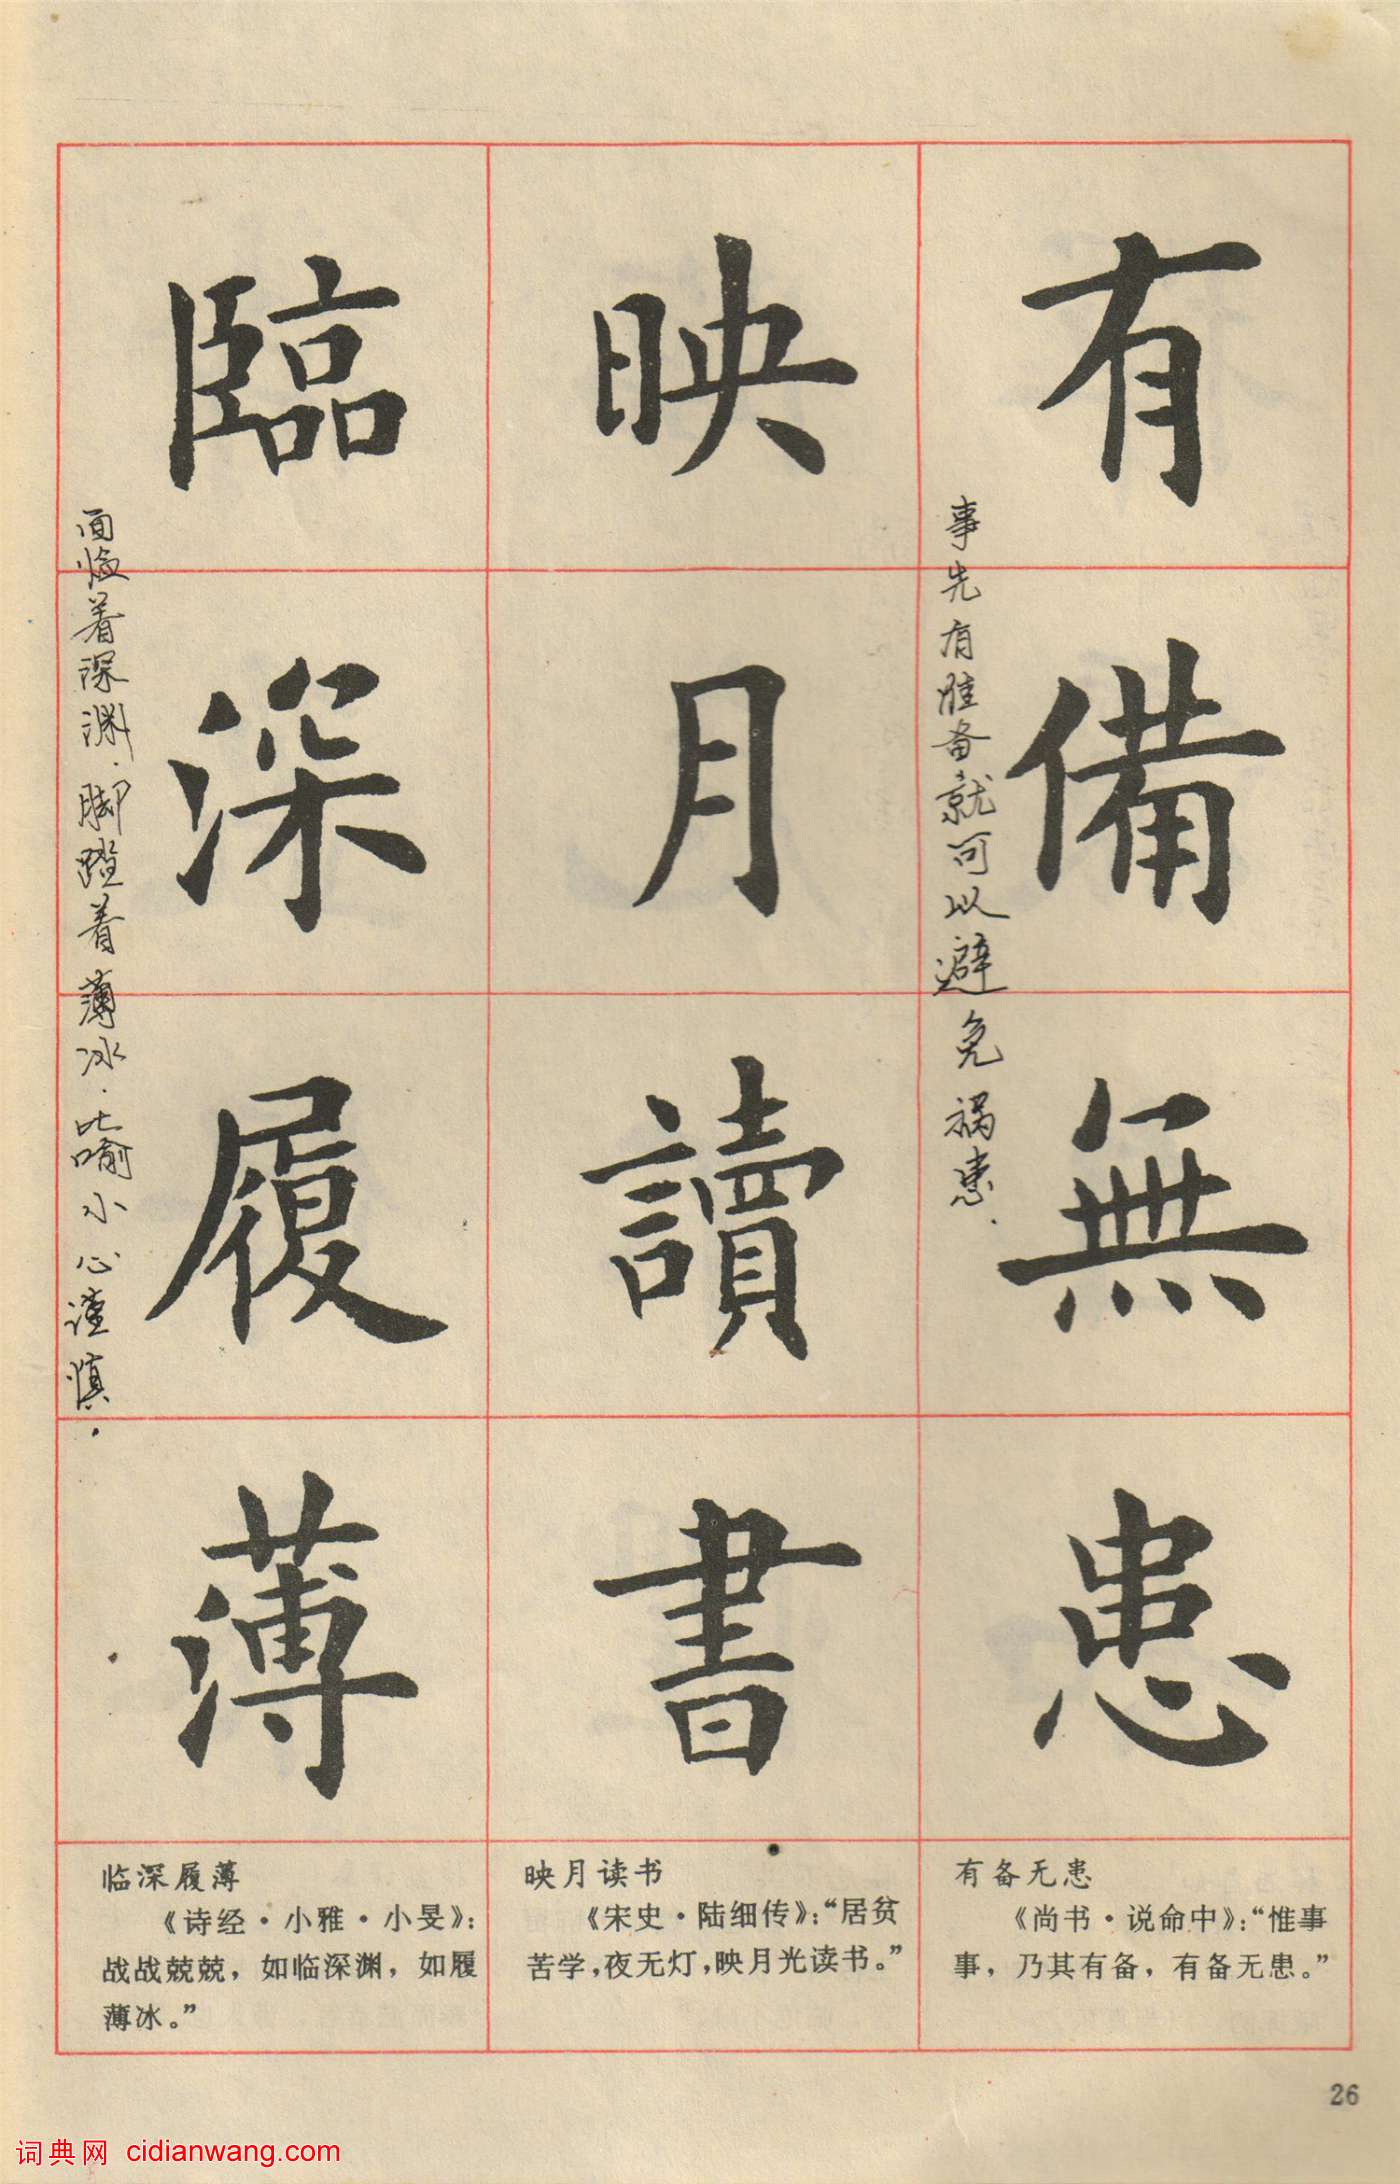 有備無患
事先有准备就可以避免祸患.
映月讀書
臨深履薄
面临着深渊.脚蹬着薄冰.比喻小心谨慎.
有备无患
《尚书·说命中》：“惟事
事，乃其有备，有备无患。”
映月读书
《宋史·陆细传》：“居贫
苦学，夜无灯，映月光读书。”
临深履薄
《诗经·小雅·小旻》：
战战兢兢，如临深渊，如履
薄冰。”
26
词典网 cidianwang.com